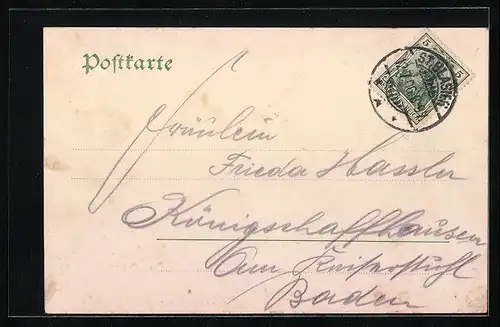 Postkarte
5
5
ST. BLASIEN
Fräulein
Frieda Hassler
Königschaffhausen
Am Kaiserstuhl
Baden